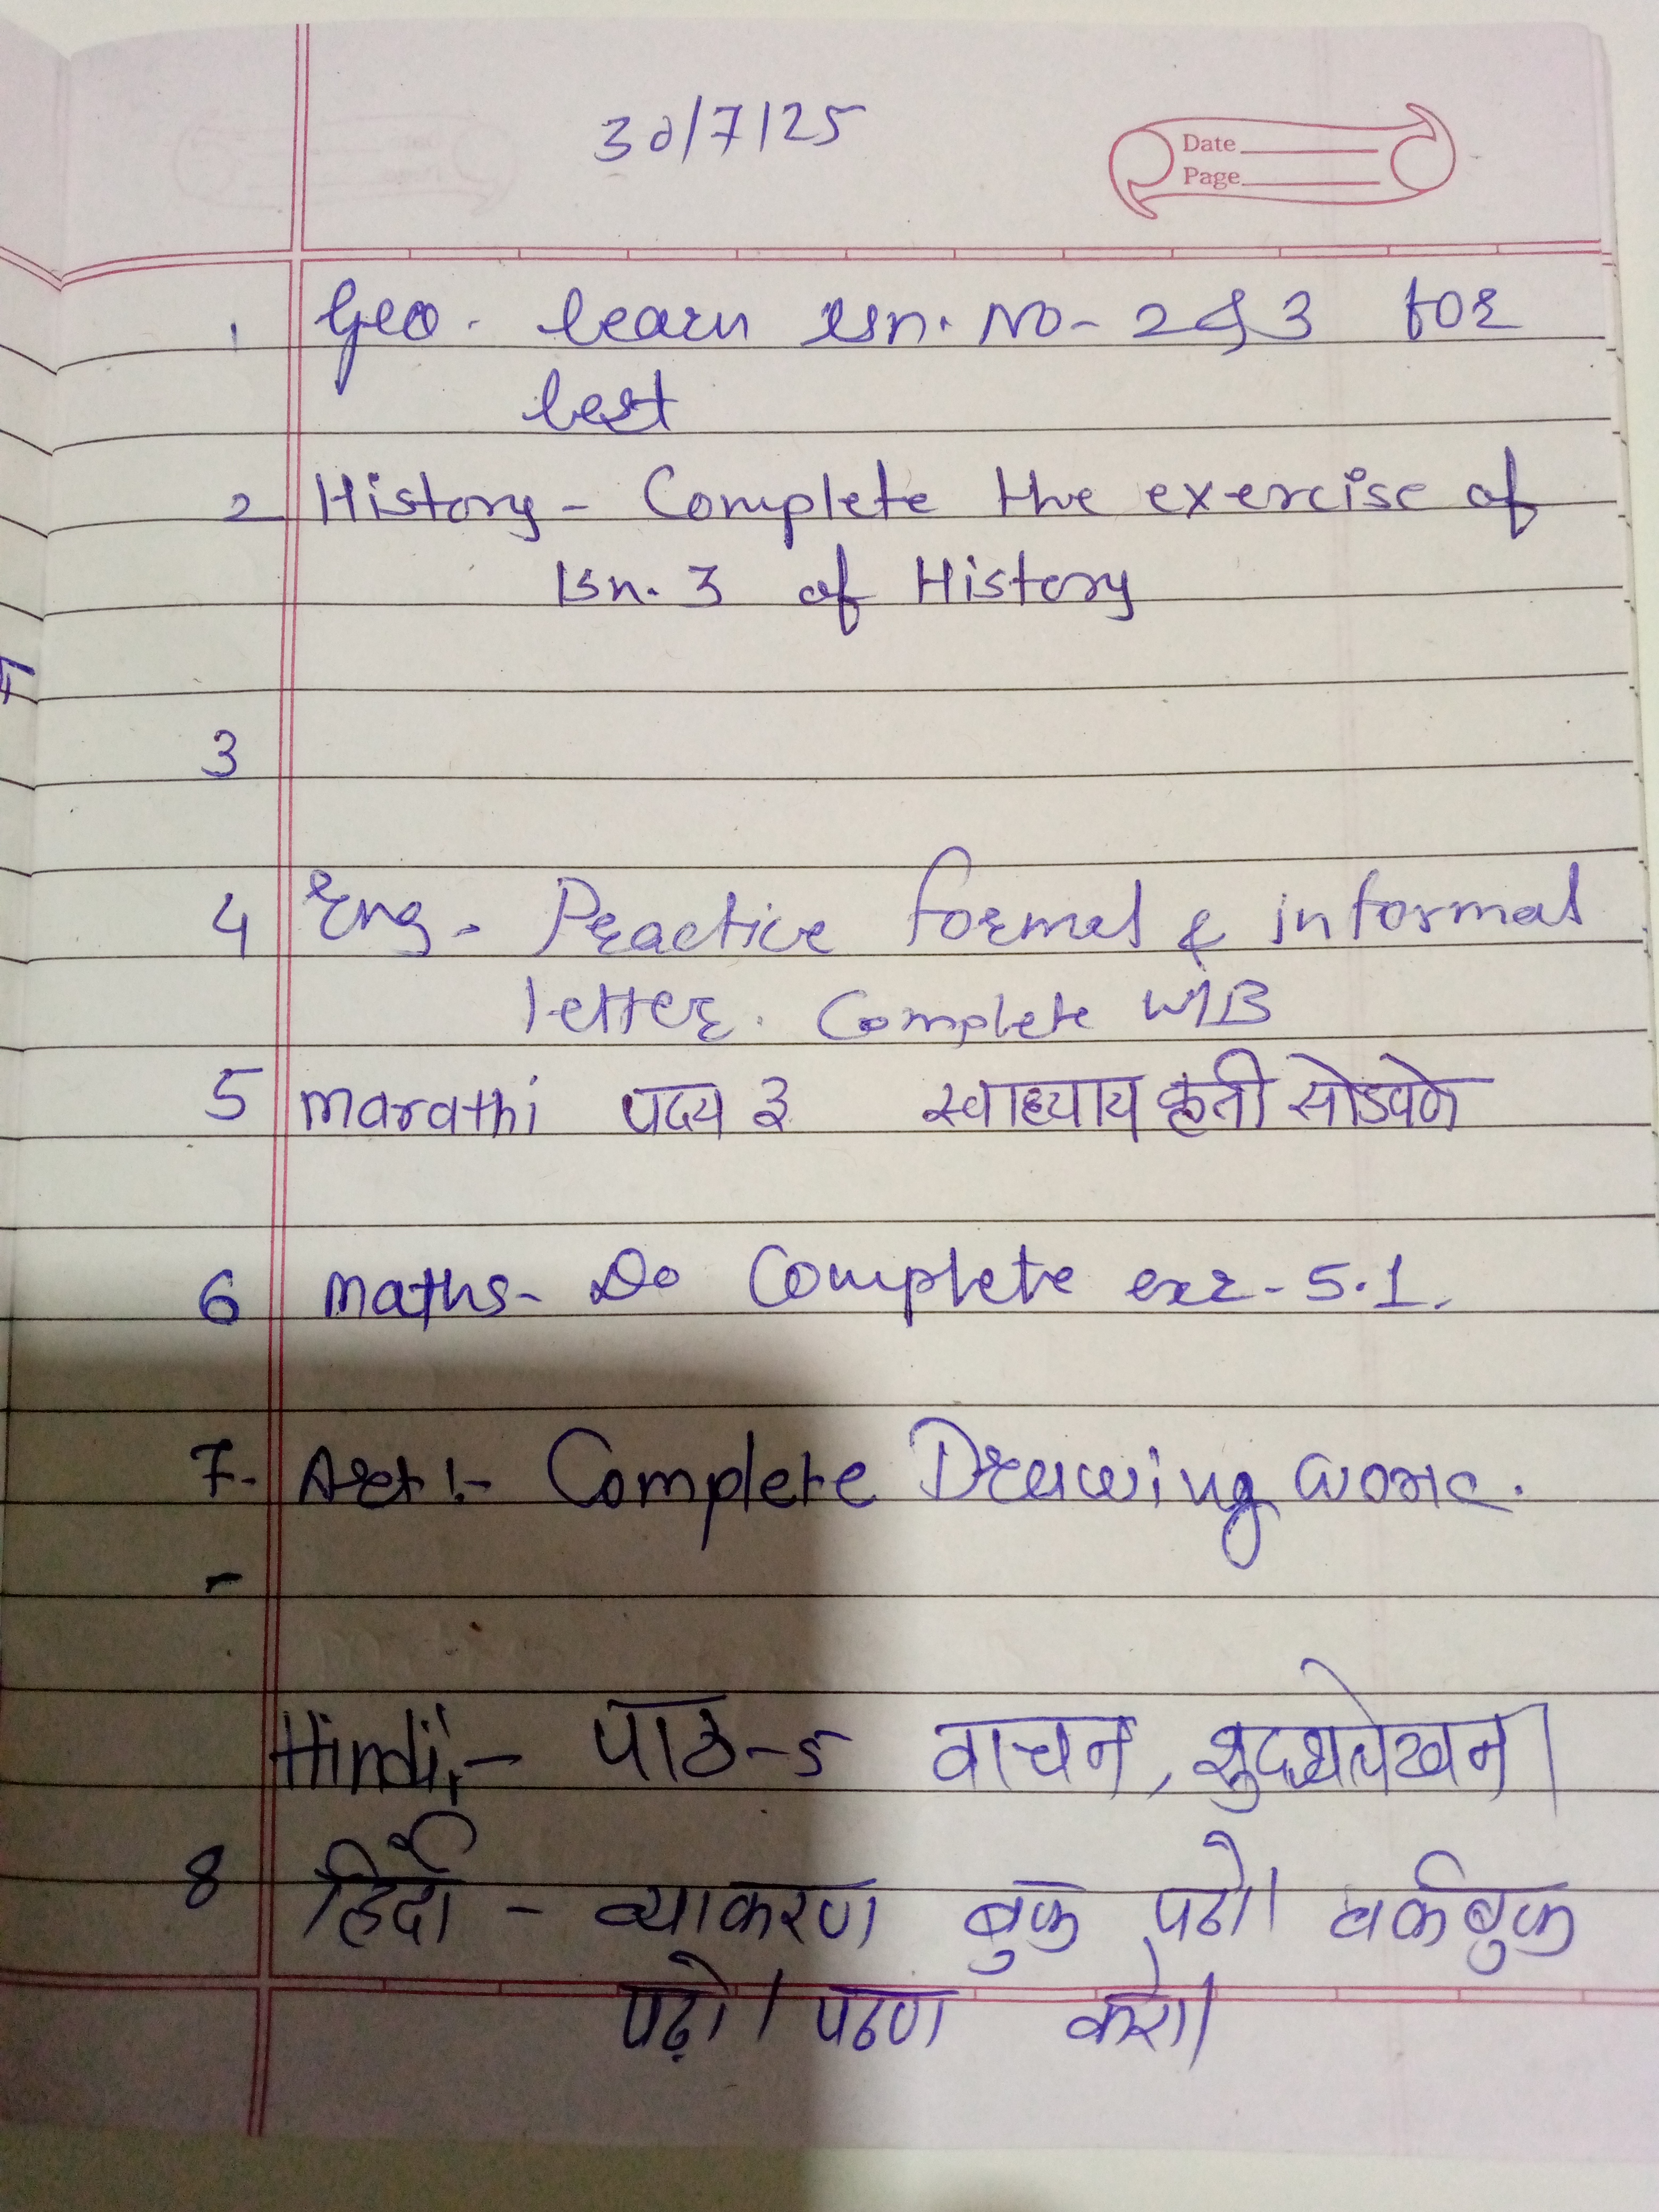 30/7/25
Date
Page
1 Geo. learn lsn. No- 2 & 3 for
test
2 History - Complete the exercise of
lsn. 3 of History
3
4 Eng - Practice formal & informal
letter. Complete W/B
5 Marathi पद्य ३ स्वाध्याय कृती सोडवणे
6 Maths - Do Complete exr - 5.1.
7. Art :- Complete Drawing work.
-
Hindi :- पाठ-5 वाचन, शुद्धलेखन।
8 हिंदी - व्याकरण बुक पढो। वर्कबुक
पढ़ो। पठण करो।